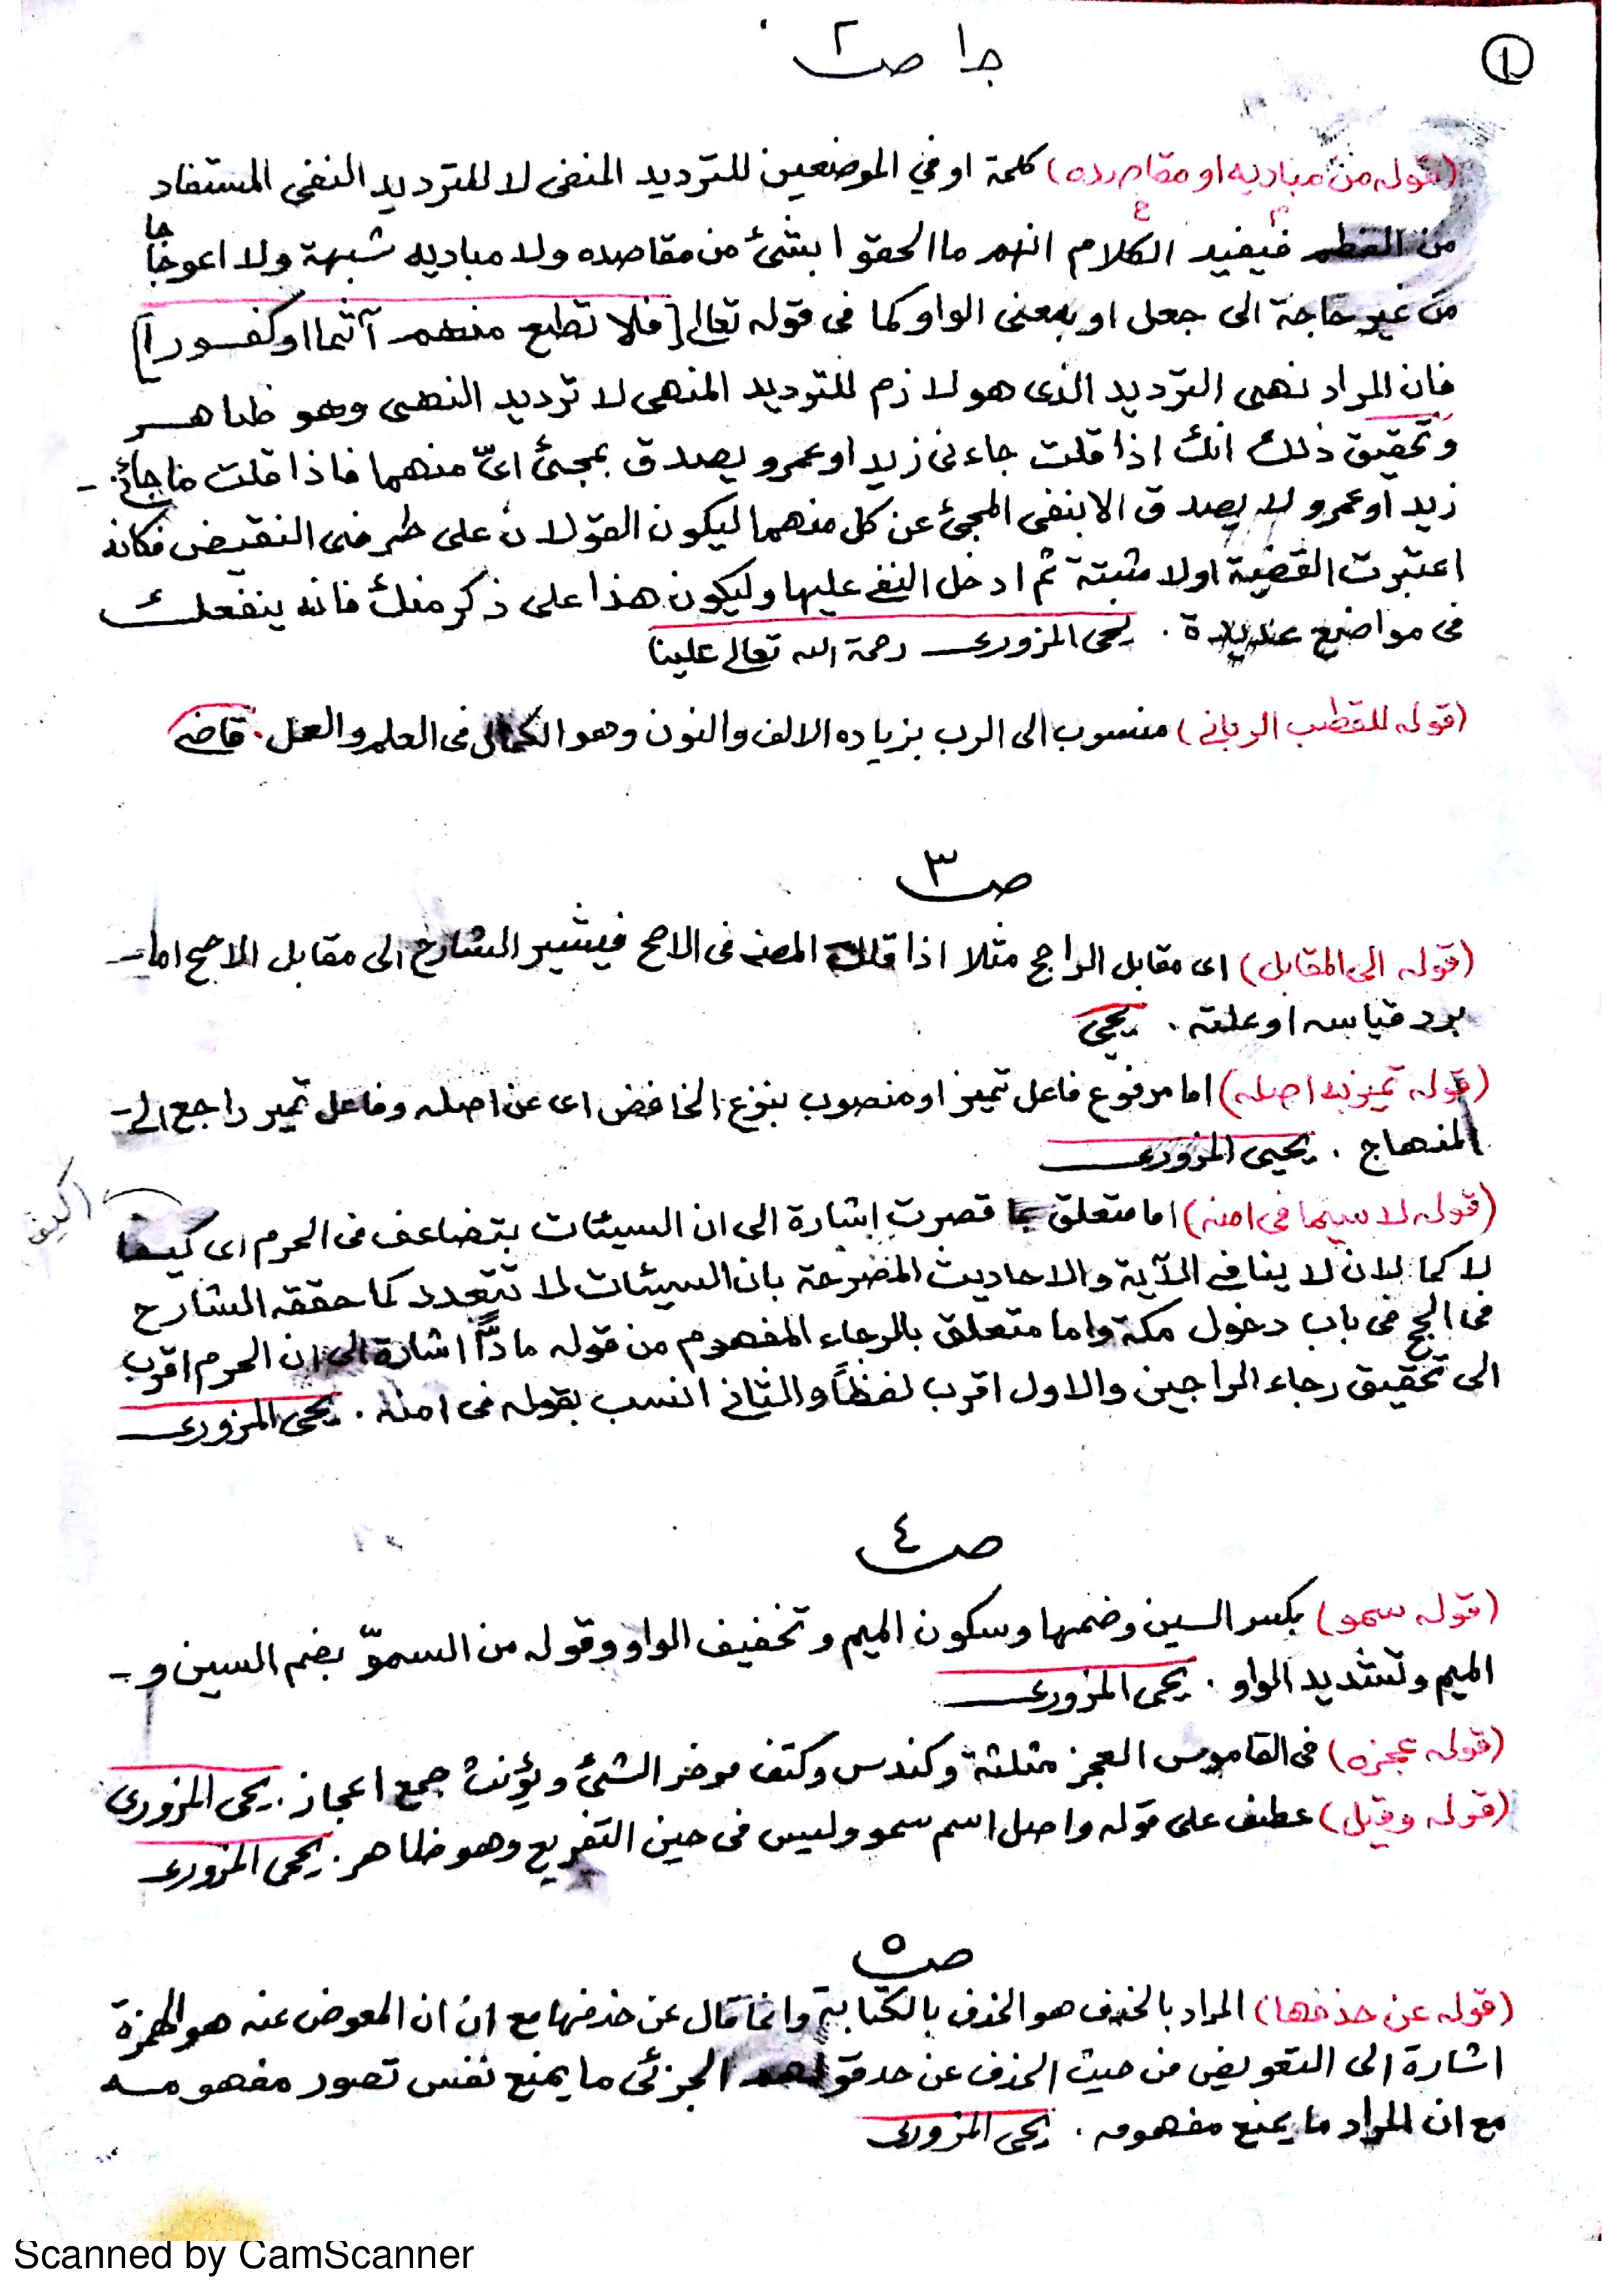 ١
جا ص ٢
(قوله من مباديه او مقاصده) كلمة او في الموضعين للترديد المنفى لا للترديد النفى المستفاد
من فيفيد الكلام انهم ما الحقوا بشئ من مقاصده ولا مباديه شبهة ولا اعوجاجا
من غير حاجة الى جعل او بمعنى الواو كما فى قوله تعالى [فلا تطع منهم آثما او كفورا]
فان المراد نهى الترديد الذى هو لازم للترديد المنهى لا ترديد النهى وهو ظاهر
وتحقيق ذلك انك اذا قلت جاءنى زيد او عمرو يصدق بمجئ اىّ منهما فاذا قلت ما جائنى -
زيد او عمرو لا يصدق الا بنفى المجئ عن كل منهما ليكون القولان على طرفى النقيض فكانه
اعتبرت القضية اولا مثبتة ثم ادخل النفى عليها وليكون هذا على ذكر منك فانه ينفعك
فى مواضع عديدة . يحى المزورى رحمة الله تعالى علينا
(قوله للقطب الربانى) منسوب الى الرب بزياده الالف والنون وهو الكمال فى العلم والعمل . قاضى
ص ٣
(قوله الى المقابل) اى مقابل الراجح مثلا اذا قال المصنه فى الاصح فيشير الشارح الى مقابل الاصح اما -
برد قياسه او علته . يحيى
(قوله تميز به اصله) اما مرفوع فاعل تميز او منصوب بنزع الخافض اى عن اصله وفاعل تميز راجع الى -
المنهاج . يحيى المزورى
(قوله لا سيما فى امنه) اما متعلق بما قصرت اشارة الى ان السيئات بتضاعف فى الحرم اى كيفا
لا كما لان لا ينافى الآية والاحاديث المصرحة بان السيئات لا تتعدد كما حققه الشارح
فى الحج فى باب دخول مكة واما متعلق بالرجاء المفهوم من قوله مادًّا اشارة الى ان الحرم اقرب
الى تحقيق رجاء الراجين والاول اقرب لفظاً والثانى انسب بقوله فى امنه . يحى المزورى
ص ٤
(قوله سمو) بكسر السين وضمها وسكون الميم وتخفيف الواو وقوله من السموّ بضم السين و -
الميم وتشديد الواو . يحى المزورى
(قوله عجزه) فى القاموس العجز مثلثة وكندس وكتف موخر الشئ ويؤنث جمع اعجاز . يحى المزورى
(قوله وقيل) عطف على قوله واصل اسم سمو وليس فى حين التفريع وهو ظاهر . يحى المزورى
ص ٥
(قوله عن حذفها) المراد بالحذف هو الحذف بالكتابة وانما قال عن حذفها مع ان ان المعوض عنه هو الهمزة
اشارة الى التعويض من حيث الحذف عن حد قولهم الجزئى ما يمنع نفس تصور مفهومه
مع ان المراد ما يمنع مفهومه . يحى المزورى
Scanned by CamScanner